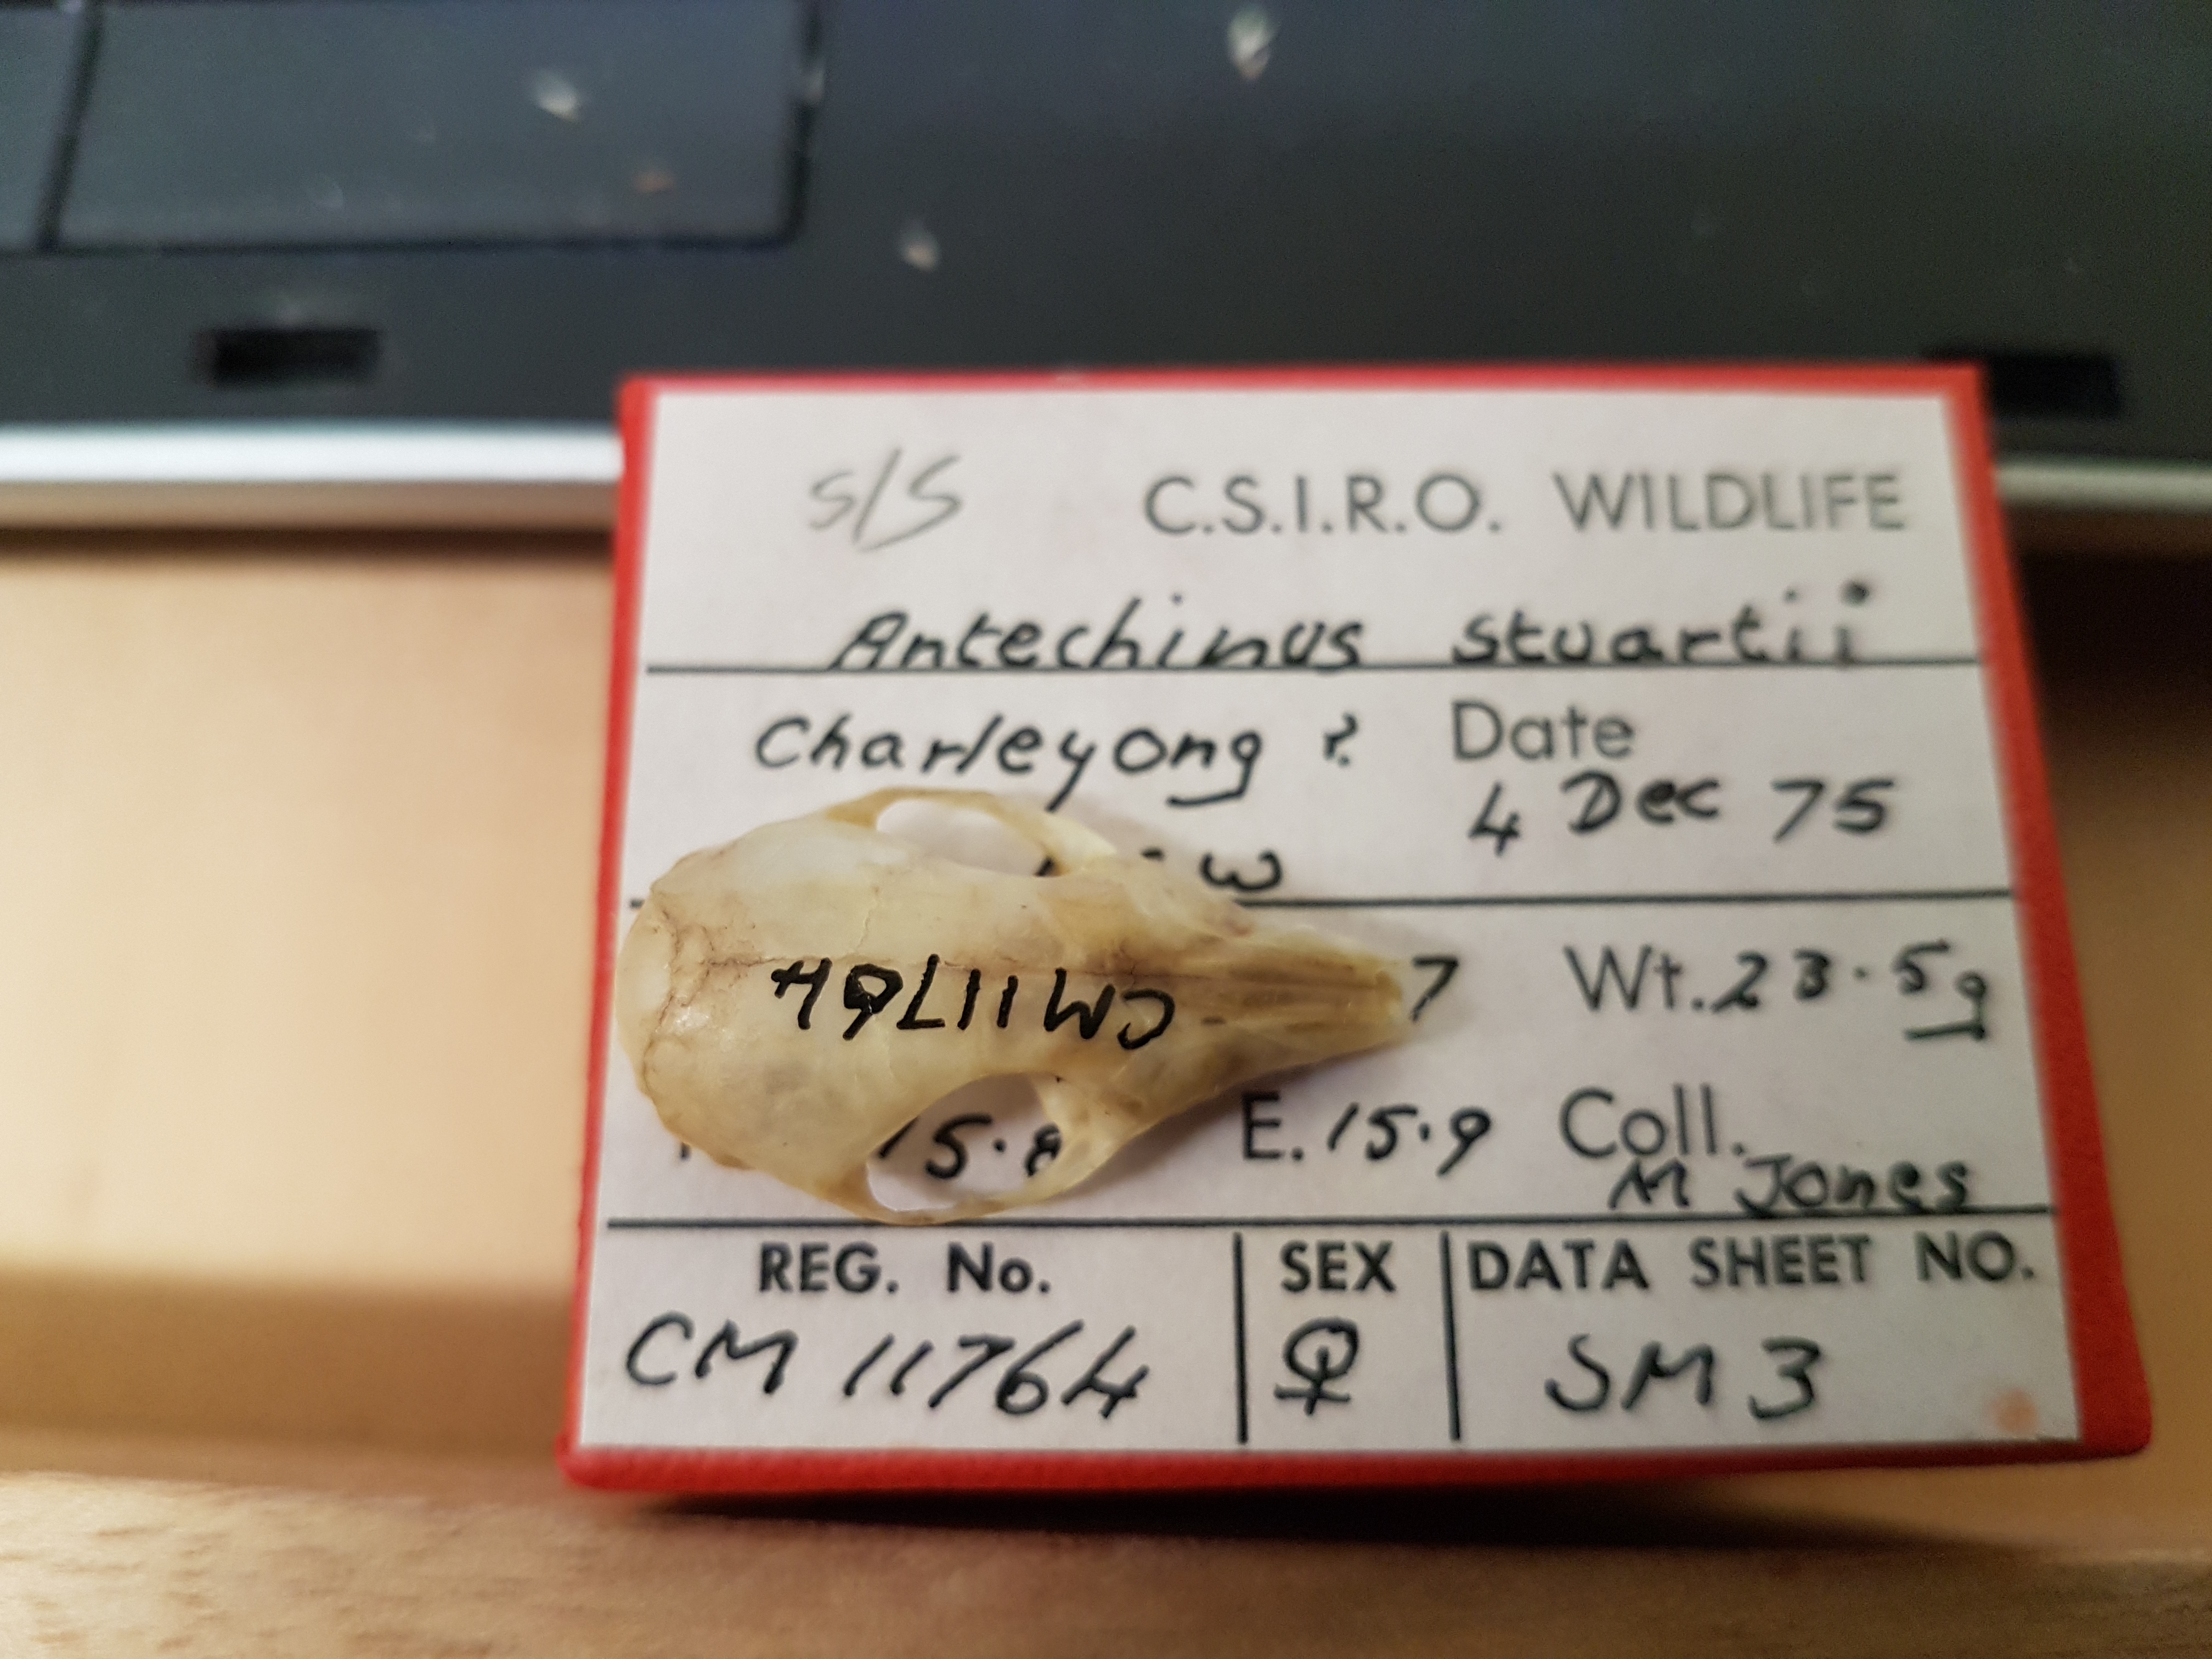 S/S C.S.I.R.O. WILDLIFE
Antechinus stuartii
Charleyong Date
4 Dec 75
7 Wt. 23.5g
15. E. 15.9 Coll. M Jones
REG. No. SEX DATA SHEET NO.
CM 11764 ♀ SM 3
CM11764